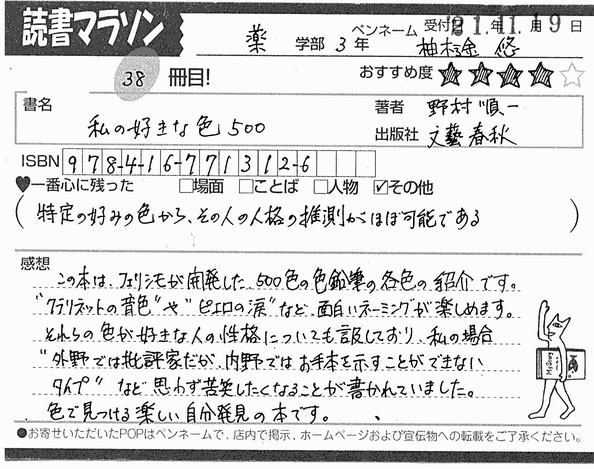 読書マラソン
薬 学部 3 年
ペンネーム 柚木途金 悠
受付日 21.年11.月19日
38 冊目!
おすすめ度 ★★★★☆
書名
私の好きな色500
著者 野村順一
出版社 文藝春秋
ISBN 978-4-16-771312-6
♥一番心に残った □場面 □ことば □人物 ☑その他
(特定の好みの色から、その人の人格の推測がほぼ可能である)
感想
この本は、フェリシモが開発した、500色の色鉛筆の各色の紹介です。
"クラリネットの音色"や"ピエロの涙"など、面白いネーミングが楽しめます。
それらの色が好きな人の性格についても記しており、私の場合
"外野では批評家だが、内野ではお手本を示すことができない
タイプ"など思わず苦笑したくなることが書かれていました。
色で見つける楽しい自分発見の本です。
●お寄せいただいたPOPはペンネームで、店内で掲示、ホームページおよび宣伝物への転載をご了承ください。